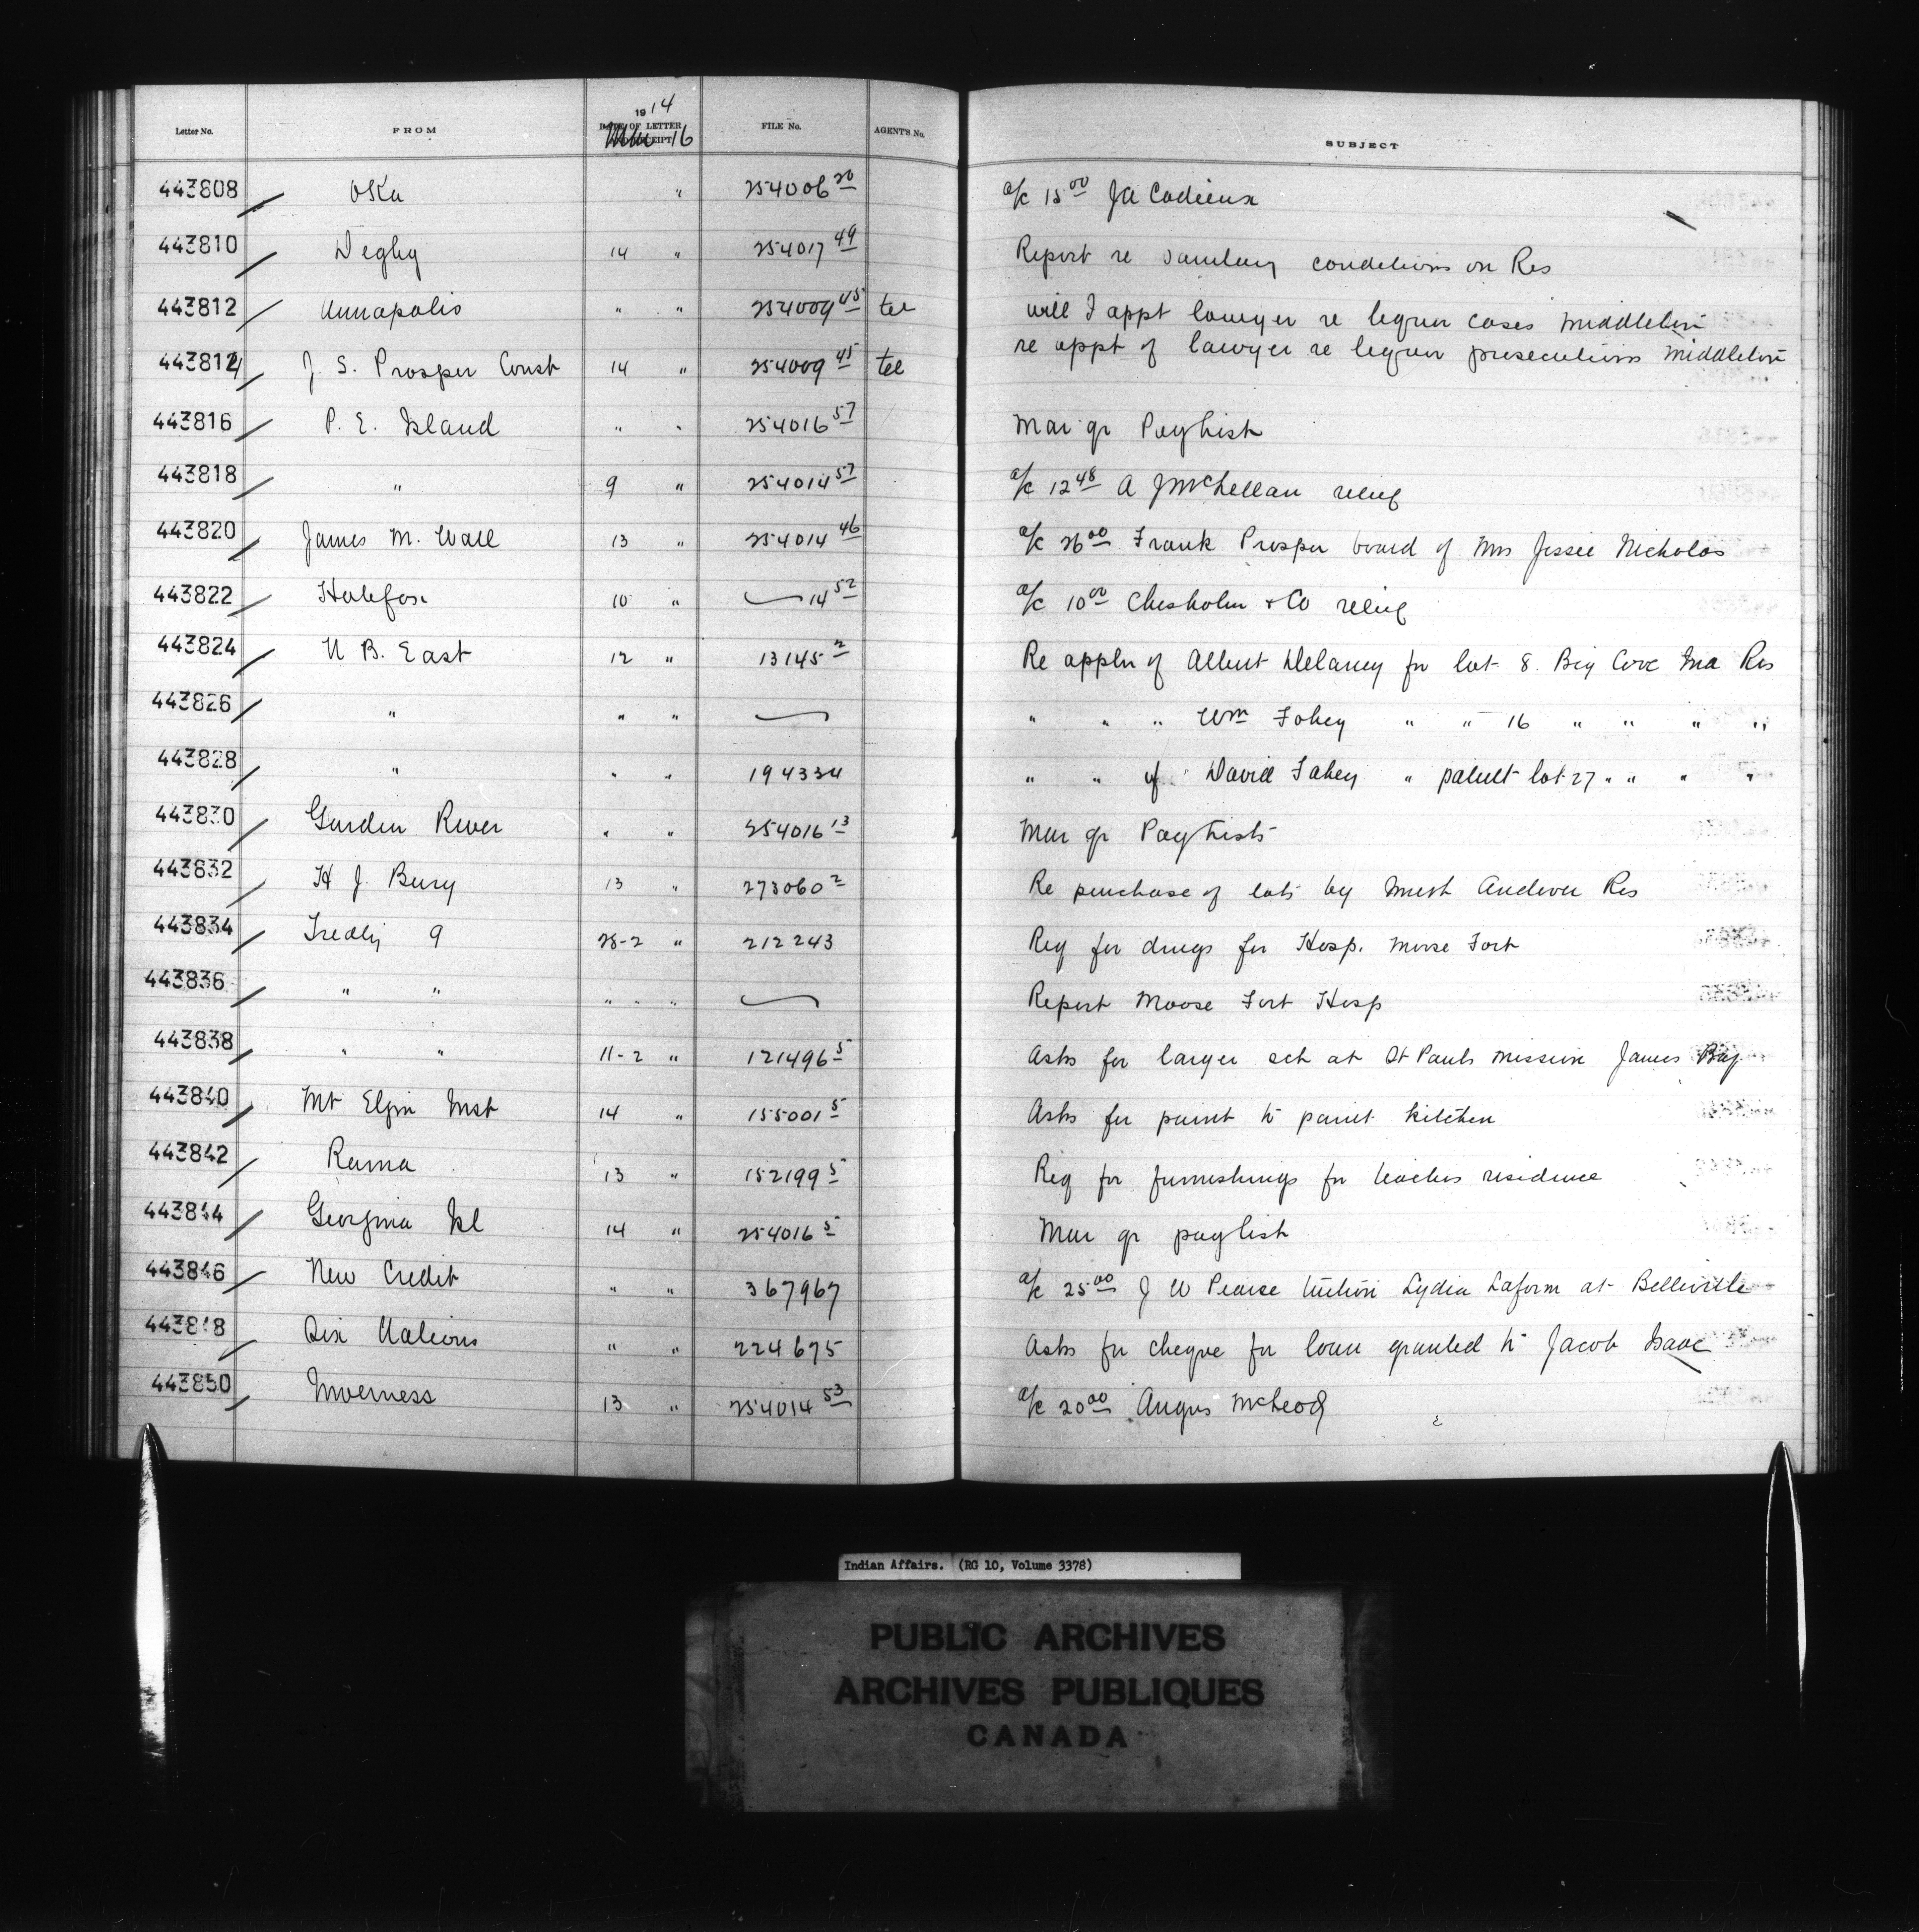 Letter No. FROM 1914 DATE OF LETTER AND RECEIPT Mar 16 FILE No. AGENT'S No. SUBJECT
443808 Oka " 254006 20 a/c 15 00 J A Cadieux
443810 Digby 14 " 254017 49 Report re sanitary conditions on Res
443812 Annapolis " " 254009 45 tel will I appt lawyer re liquor cases Middleton
443814 J. S. Prosper Const 14 " 254009 45 tel re appt of lawyer re liquor prosecutions Middleton
443816 P. E. Island " " 254016 57 Mar qr Paylist
443818 " 9 " 254014 57 a/c 12 48 A J McLellan relief
443820 James M. Wall 13 " 254014 46 a/c 26 00 Frank Prosper board of Mrs Jessie Nicholas
443822 Halifax 10 " 14 52 a/c 10 00 Chisholm & Co relief
443824 N B. East 12 " 13145 2 Re appln of Albert Delaney for lot 8. Big Cove Ind Res
443826 " " " " " " Wm Fahey " " 16 " " " "
443828 " " " 194334 " " of David Fahey " patent lot 27 " " " "
443830 Garden River " " 254016 13 Mar qr Paylists
443832 H J. Bury 13 " 273060 2 Re purchase of lots by Andover Res
443834 Treaty 9 28-2 " 212243 Req for drugs for Hosp. Moose Fort
443836 " " " " " Report Moose Fort Hosp
443838 " " 11-2 " 121496 5 Asks for larger sch at St Pauls mission James Bay
443840 Mt Elgin Inst 14 " 155001 5 Asks for paint to paint kitchen
443842 Rama 13 " 152199 5 Req for furnishings for teachers residence
443844 Georgina Isl 14 " 254016 5 Mar qr paylist
443846 New Credit " " 367967 a/c 25 00 J W Pearce tuition Lydia Laform at Belleville
443848 Six Nations " " 224675 Asks for cheque for loan granted to Jacob Isaac
443850 Inverness 13 " 254014 53 a/c 20 00 Angus McLeod
Indian Affairs. (RG 10, Volume 3378)
PUBLIC ARCHIVES
ARCHIVES PUBLIQUES
CANADA